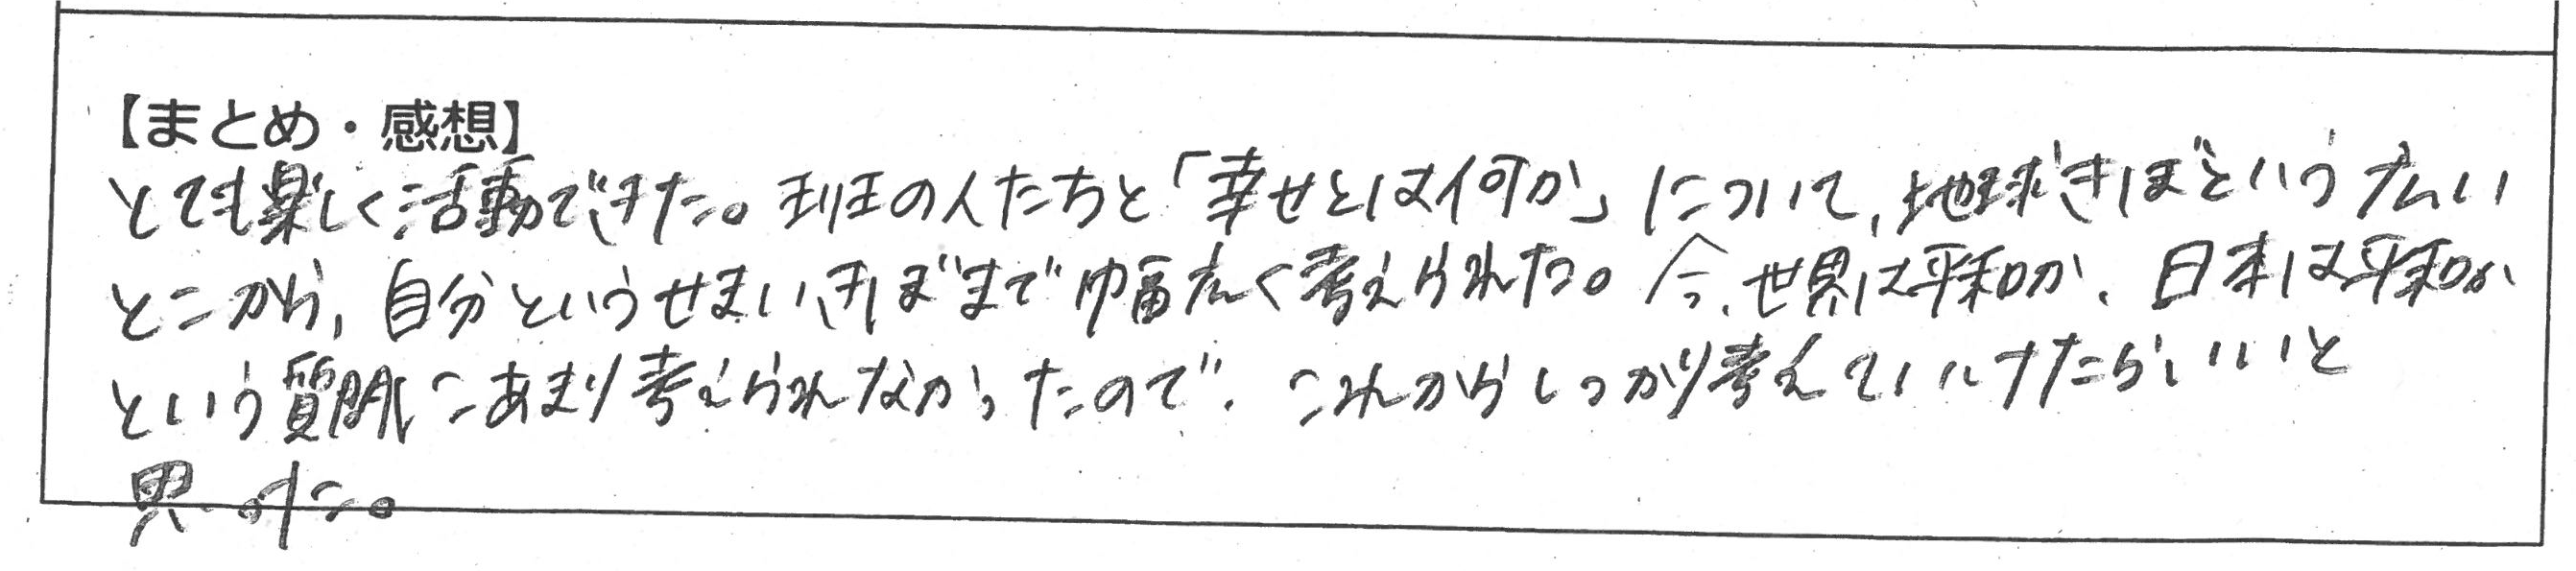 【まとめ・感想】
とても楽しく活動できた。班の人たちと「幸せとは何か」について、地球きぼという広い
とこから、自分というせまいきぼまで幅広く考えられた。今、世界は平和か、日本は平和か
という質問にあまり考えられなかったので、これからしっかり考えていけたらいいと
思った。